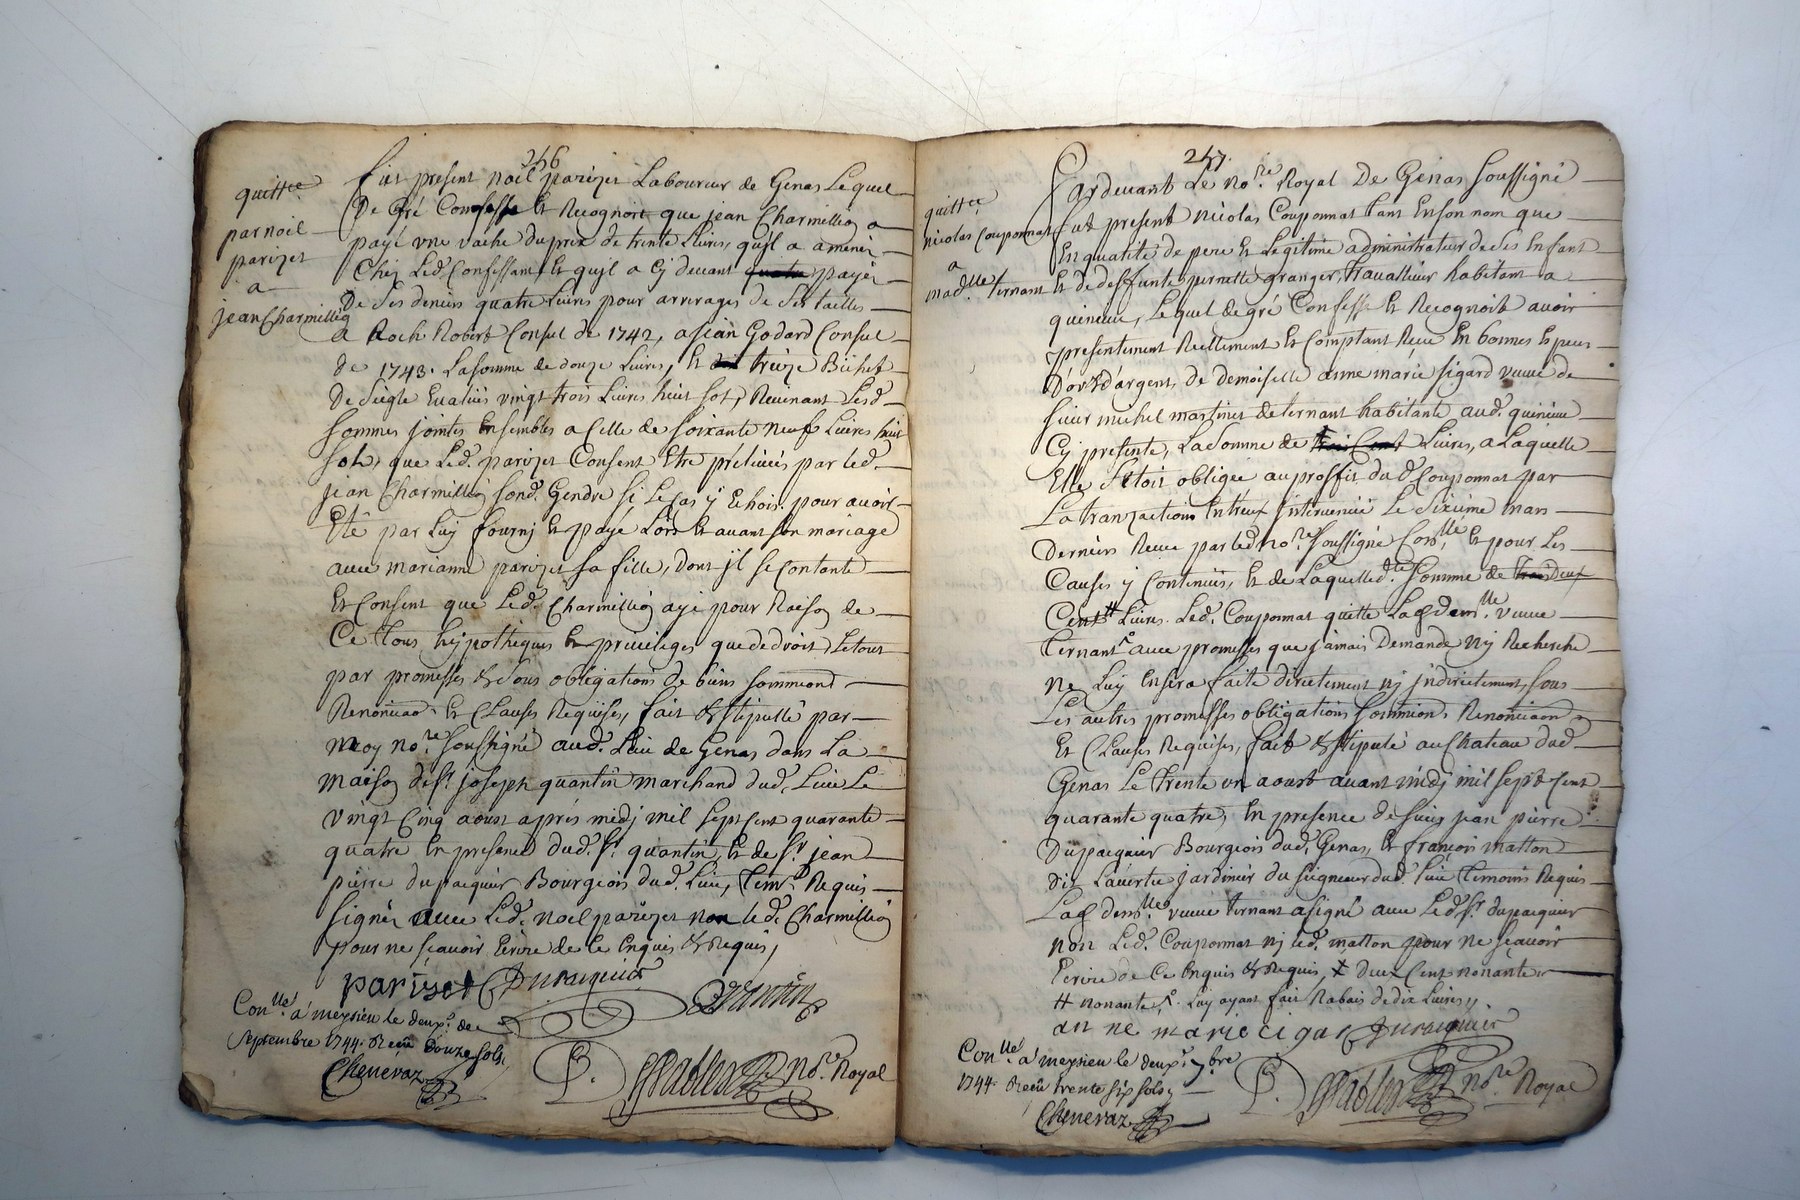 246
quitt.ce
par noel
parizet
a
jean Charmillio
Fut present noel parizet Laboureur de Genas Lequel
De Gré Confesse Et Recognoit que jean Charmillio a
payé une vache du prix de trente Livres, qu'il a amené
Chez Led. Confessant, Et qu'il a Cy devant quatre payé
De Ses deniers quatre Livres pour arrerages de Ses tailles
a Roch Robert Consul de 1742, a jean Godard Consul
de 1743. La somme de douze Livres, Et treize Bichet
De Siegle Evalués vingt trois Livres huit sols, Revenant Lesd.
Sommes jointes Ensembles a Celle de Soixante neuf Livres huit
sols, que Led. parizet Consent Etre prelevés par led.
jean Charmillio sond. Gendre si Le Cas y Echoit. pour avoir
Eté par Luy fourny Et payé Lors Et avant son mariage
avec marianne parizet sa fille, Dont jl se Contante
Et Consent que Led. Charmillio aye pour Raison de
Ce tous hypotheques Et privileges que de droit, Le tout
par promesses & sous obligations de biens soumiond
Renonciaõ Et Clauses Requises, fait & stipullé par
Moy no.re soussigné aud. Lieu de Genas dans La
maison de S.r joseph quantin marchand dud. Lieu Le
vingt Cinq aoust aprés midj mil Sept Cent quarante
quatre En presence dud. S.r quantin, Et de S.r jean
pierre dupacquier Bourgeois dud. Lieu, temoins Requis
signés avec Led. noel parizet non led. Charmillio
pour ne sçavoir Ecrire de Ce Enquis & Requis,
parizet Dupacquier
Quantin
Con.lle á meysieu le deux.e de
Septembre 1744. Receu douze sols,
Cheneraz
P. no.re Royal
247.
quitt.ce
nicolas Couponnat
a
mad.lle ternant
Pardevant Le no.re Royal De Genas soussigné
Fut present nicolas Couponnat tant En son nom que
En qualité de pere Et Legitime administrateur de Ses Enfant
Et de deffunte pernette Granger, travailleur habitant a
quinieux, Lequel de gré Confesse Et Recognoit avoir
presentement Reellement Et Comptant Receu En bonnes Especes
D'or & d'argent, de demoiselle anne marie sigard veuve de
sieur michel martinet de ternant habitante aud. quinieux
Cy presente, La somme de trois Cent Livres, a Laquelle
Elle S'etoit obligée au proffit dud. Couponnat par
La tranzaction Entreux jntervenüe Le sixieme mars
Dernier Receu par led. no.re soussigné Con.llé Et pour Les
Causes y Contenües, Et de Laquelle d.te somme de trois Deux
Cent # Livres. Led. Couponnat quitte Lad. dem.lle veuve
Ternant avec promesses que jamais Demande ny Recherche
ne Luy En sera faite directement nj jndirectement, sous
Les autres promesses obligations soumiond Renonciaõn
Et Clauses Requises, fait & stipulé au Chateau dud.
Genas Le trente un aoust avant midj mil sept Cent
quarante quatre, En presence de sieur jean pierre
Dupacquier Bourgeois dud. Genas, Et françois matton
dit Lavertu jardinier du seigneur dud. Lieu temoins Requis
Lad. dem.lle veuve ternant a signé avec Led. S.r dupacquier
non Led. Couponnat nj led. matton pour ne sçavoir
Ecrire de Ce Enquis & Requis, X deux Cent nonante
# nonante Luy ayant fait Rabais de dix Livres
an ne marie cigar Dupacquier
Con.lle á meysieu le deux.e 7.bre
1744. Receu trente six sols
Cheneraz
P. no.re Royal